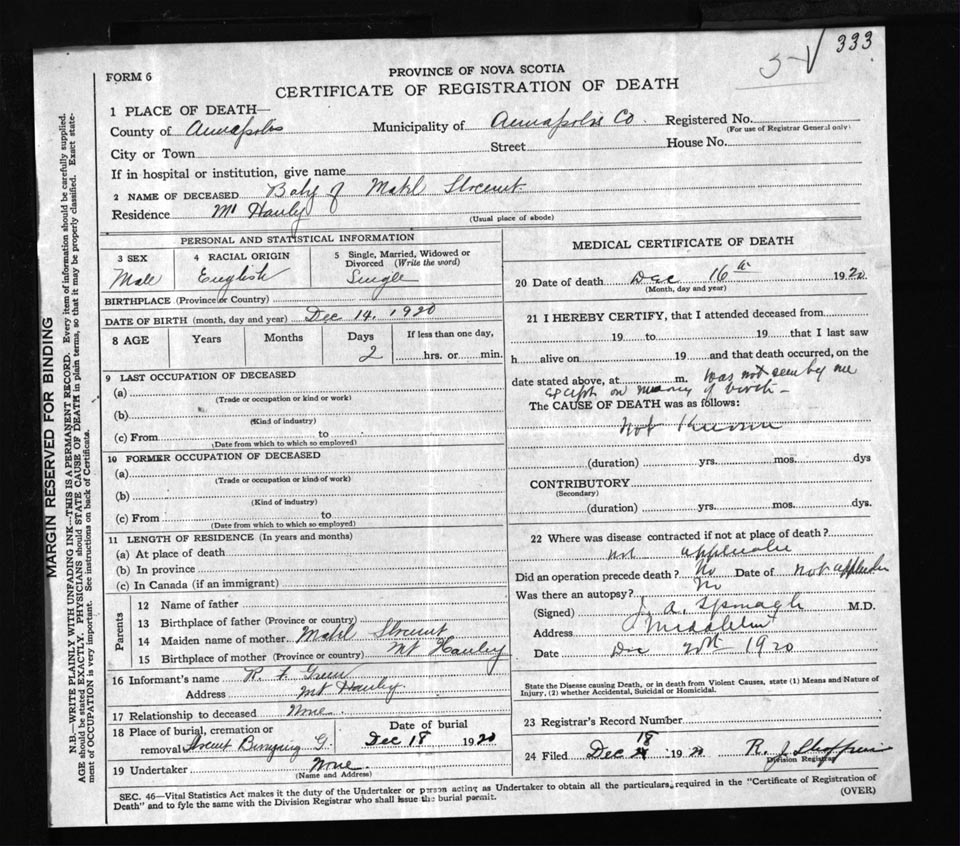 333
FORM 6
PROVINCE OF NOVA SCOTIA
CERTIFICATE OF REGISTRATION OF DEATH
1 PLACE OF DEATH—
County of Annapolis Municipality of Annapolis Co. Registered No.
(For use of Registrar General only)
City or Town Street House No.
If in hospital or institution, give name
2 NAME OF DECEASED Baby of Mabl
Residence Mt Hanly
(Usual place of abode)
PERSONAL AND STATISTICAL INFORMATION
3 SEX 4 RACIAL ORIGIN 5 Single, Married, Widowed or Divorced (Write the word)
Male English Single
BIRTHPLACE (Province or Country)
DATE OF BIRTH (month, day and year) Dec 14, 1920
8 AGE Years Months Days If less than one day,
2 hrs. or min.
9 LAST OCCUPATION OF DECEASED
(a)
(Trade or occupation or kind or work)
(b)
(Kind of industry)
(c) From to
(Date from which to which so employed)
10 FORMER OCCUPATION OF DECEASED
(a)
(Trade or occupation or kind of work)
(b)
(Kind of industry)
(c) From to
(Date from which to which so employed)
11 LENGTH OF RESIDENCE (In years and months)
(a) At place of death
(b) In province
(c) In Canada (if an immigrant)
Parents
12 Name of father
13 Birthplace of father (Province or country)
14 Maiden name of mother Mabl
15 Birthplace of mother (Province or country) Mt Hanley
16 Informant's name R.
Address Mt Hanley.
17 Relationship to deceased None
18 Place of burial, cremation or Date of burial
removal G. Dec 18 1920
19 Undertaker None.
(Name and Address)
MEDICAL CERTIFICATE OF DEATH
20 Date of death Dec 16th 1920
(Month, day and year)
21 I HEREBY CERTIFY, that I attended deceased from
19 to 19 that I last saw
h alive on 19 and that death occurred, on the
date stated above, at m. Was not seen by me
except on of birth—
The CAUSE OF DEATH was as follows:
Not Known
(duration) yrs. mos. dys
CONTRIBUTORY
(Secondary)
(duration) yrs. mos. dys.
22 Where was disease contracted if not at place of death?
not applicable
Did an operation precede death? No Date of not applicable
Was there an autopsy? No
(Signed) J. A. M.D.
Address Middleton
Date Dec 20th 1920
State the Disease causing Death, or in death from Violent Causes, state (1) Means and Nature of
Injury, (2) whether Accidental, Suicidal or Homicidal.
23 Registrar's Record Number
24 Filed Dec 18 1920 R. J.
Division Registrar
SEC. 46—Vital Statistics Act makes it the duty of the Undertaker or person acting as Undertaker to obtain all the particulars required in the "Certificate of Registration of
Death" and to fyle the same with the Division Registrar who shall issue the burial permit.
(OVER)
MARGIN RESERVED FOR BINDING
N.B.—WRITE PLAINLY WITH UNFADING INK—THIS IS A PERMANENT RECORD. Every item of information should be carefully supplied.
AGE should be stated EXACTLY. PHYSICIANS should STATE CAUSE OF DEATH in plain terms, so that it may be properly classified. Exact state-
ment of OCCUPATION is very important. See instructions on back of Certificate.